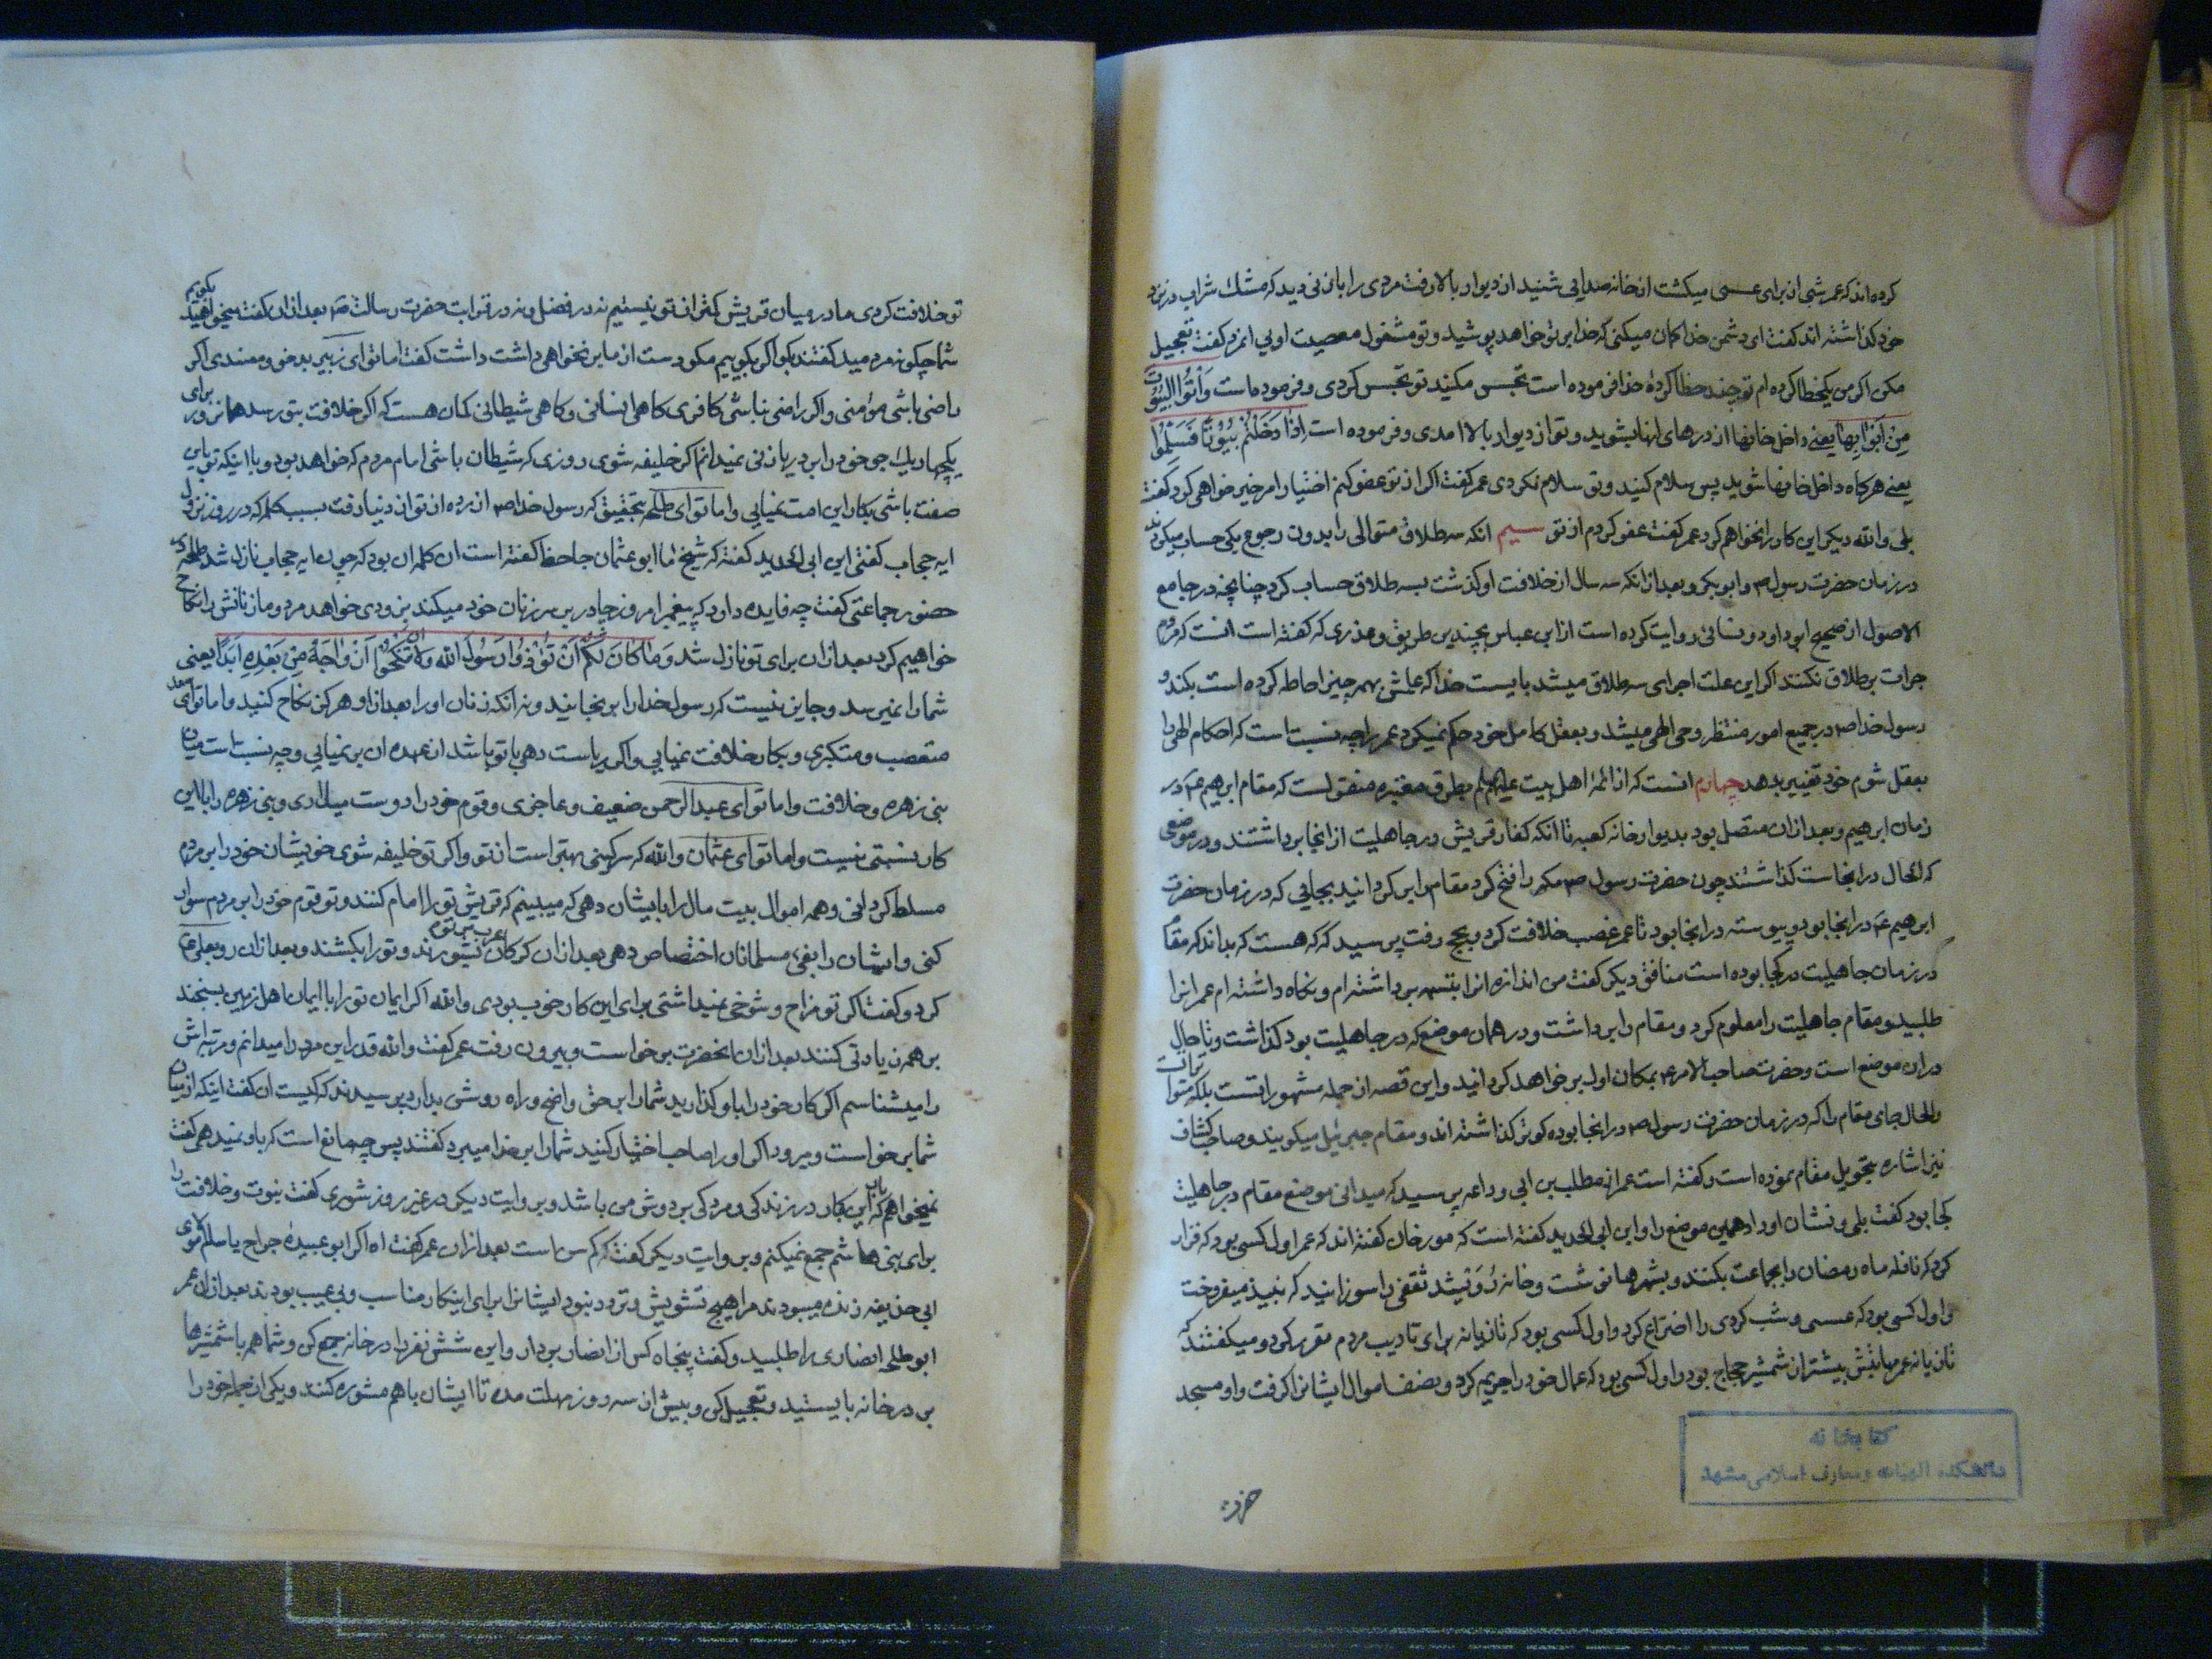 کرده‌اند که عمر شبی از برای عسی میکشت از خانه صدایی شنید از دیوار بالا رفت مردی را با زنی دید که مشک شراب در نزد
خود کذاشته اند کفت ای دشمن خدا کمان میکنی که خدا بر تو خواهد پوشید و تو مشغول معصیت اویی انمرد کفت تعجیل
مکن اکر من یکخطا کرده ام تو چند خطا کردهٔ خدا فرموده است تجسس مکنید تو تجسس کردی و فرموده است وَأْتُوا الْبُیُوتَ
مِنْ اَبْوَابِهَا یعنی داخل خانها از درهای انها بشوید و تو از دیوار بالا امدی و فرموده است اِذَا دَخَلْتُمْ بُیُوتًا فَسَلِّمُوا
یعنی هرکاه داخل خانها شوید پس سلام کنید و تو سلام نکردی عمر کفت اکر از تو عفو کنم اختیار امر خیر خواهی کرد کفت
بلی والله دیکر این کار را نخواهم کرد عمر کفت عفو کردم از تو سیم انکه سه طلاق متوالی را بدون رجوع یکی حساب میکردند
در زمان حضرت رسول ص و ابوبکر و بعد از انکه سه سال از خلافت او کذشت بسه طلاق حساب کرد چنانچه در جامع
الاصول از صحیح ابو داود و نسائی روایت کرده است از ابن عباس بچندین طریق و عذری که کفته است انست که مردم
جرات بر طلاق نکنند اکر این علت اجرای سه طلاق میشد بایست خدا که علمش بهمه چیز احاطه کرده است بکند و
رسول خدا ص در جمیع امور منتظر وحی الهی میشد و بعقل کامل خود حکم نمیکرد عمر را چه نسبت است که احکام الهی را
بعقل شوم خود تغییر بدهد چهارم انست که از ائمهٔ اهل بیت علیهم السلم بطرق معتبره منقول است که مقام ابرهیم ع در
زمان ابرهیم و بعد از ان متصل بود بدیوار خانه کعبه تا انکه کفار قریش در جاهلیت از انجا برداشتند و در موضعی
که الحال در انجاست کذاشتند چون حضرت رسول ص مکه را فتح کرد مقام را برکردانید بجایی که در زمان حضرت
ابرهیم ع در انجا بود و پیوسته در انجا بود تا عمر غصب خلافت کرد و بحج رفت پرسید که که هست که بداند که مقام
در زمان جاهلیت در کجا بوده است منافق دیکر کفت من اندازه انرا بتسمه برداشته ام و نکاه داشته ام عمر انرا
طلبید و مقام جاهلیت را معلوم کرد و مقام را برداشت و در همان موضع که در جاهلیت بود کذاشت و تا حال
در ان موضع است و حضرت صاحب الامر ع بمکان اول بر خواهد کردانید و این قصه از جمله مشهوراتست بلکه متواترات
و الحال جای مقام را که در زمان حضرت رسول ص در انجا بوده کوتر کذاشته اند و مقام جبرئیل میکویند و صاحب کشاف
نیز اشاره بتحویل مقام نموده است و کفته است عمر از مطلب بن ابی وداعه پرسید که میدانی موضع مقام در جاهلیت
کجا بود کفت بلی و نشان او داد همین موضع را و ابن ابی الحدید کفته است که مورخان کفته اند که عمر اول کسی بود که قرار
کرد که نافله ماه رمضان را بجماعت بکنند و بشهرها نوشت و خانه رُوَیْشد ثقفی را سوزانید که نبیذ میفروخت
و اول کسی بود که عسی و شب کردی را اختراع کرد و اول کسی بود که تازیانه برای تادیب مردم مقرر کرد و میکفتند که
تازیانه عمر مهابتش بیشتر از شمشیر حجاج بود و اول کسی بود که عمال خود را جریمه کرد و نصف اموال ایشانرا کرفت و او مسجد
کتابخانه
دانشکده الهیات و معارف اسلامی مشهد
تو خلافت کردی ما در میان قریش کمتر از تو نیستیم نه در فضل و نه در قرابت حضرت رسالت ص بعد از ان کفت میخواهید بکویم
شما چکونه مردمید کفتند بکو اکر بکوییم مکو دست از ما بر نخواهی داشت کفت اما تو ای زبیر بدخو و مفسدی اکر
راضی باشی مؤمنی و اکر راضی نباشی کافری کاهی انسانی و کاهی شیطانی کمان هست که اکر خلافت بتو رسد همان روز برای
یکچهاریک جو خود را بر در یا زنی نمیدانم اکر خلیفه شوی روزی که شیطان باشی امام مردم که خواهد بود و با اینکه تو باین
صفت باشی بکار این امت نمیایی و اما تو ای طلحه بتحقیق که رسول خدا ص ازرده از تو از دنیا رفت بسبب کلمه که در روز نزول
ایه حجاب کفتی ابن ابی الحدید کفته که شیخ ما ابو عثمان جاحظ کفته است ان کلمه ان بود که چون ایه حجاب نازل شد طلحه در
حضور جماعتی کفت چه فایده دارد که پیغمبر امروز چادر بر سر زنان خود میکند بزودی خواهد مرد و ما زنانش را نکاح
خواهیم کرد بعد از ان برای تو نازل شد وَمَا كَانَ لَكُمْ أَنْ تُؤْذُوا رَسُولَ الله وَلَا أَنْ تَنْكِحُوا أَزْوَاجَهُ مِنْ بَعْدِهِ أَبَدًا یعنی
شما را نمیرسد و جایز نیست که رسول خدا را برنجانید و نه انکه زنان او را بعد از او هرکز نکاح کنید و اما تو ای سعد
متعصب و متکبری و بکار خلافت نمیایی و اکر ریاست دهی با تو باشد از عهده ان بر نمیایی و چه نسبت است میان
بنی زهره و خلافت و اما تو ای عبدالرحمن ضعیف و عاجزی و قوم خود را دوست میداری و بنی زهره را با این
کار نسبتی نیست و اما تو ای عثمان والله که سرکینی بهتر است از تو و اکر تو خلیفه شوی خویشان خود را بر مردم
مسلط کردانی و همه اموال بیت مال را بایشان دهی که میبینم که قریش تو را امام کنند و تو قوم خود را بر مردم سوار
کنی و ایشان را بفیء مسلمانان اختصاص دهی بعد از ان کرکان عرب بر تو بشورند و تو را بکشند و بعد از ان رو بعلی ع
کرد و کفت اکر تو مزاح و شوخی نمیداشتی برای این کار خوب بودی والله اکر ایمان تو را با ایمان اهل زمین بسنجند
بر همه زیادتی کنند بعد از ان انحضرت برخواست و بیرون رفت عمر کفت والله قدر این مرد را میدانم و مرتبه اش
را میشناسم اکر کار خود را باو کذارید شما را بر حق واضح و راه روشن بدارد پرسیدند که کیست ان کفت اینکه از میان
شما برخواست و میرود اکر او را صاحب اختیار کنید شما را بر خدا میبرد کفتند پس چه مانع است که باو نمیدهی کفت
نمیخواهم که بار این کار در زندکی و مردکی بر دوش من باشد و بروایت دیکر در غیر روز شوری کفت نبوت و خلافت را
برای بنی هاشم جمع نمیکنم و بروایت دیکر کفت که کم سن است بعد از ان عمر کفت اه اکر ابو عبیدهٔ جراح یا سالم مولای
ابی حذیفه زنده میبودند مرا هیچ تشویش و تردد نبود ایشانرا برای اینکار مناسب و بی عیب بودند بعد از ان عمر
ابو طلحه انصاری را طلبید و کفت پنجاه کس از انصار بردار و این شش نفر را در خانه جمع کن و شما همه با شمشیرها
بر در خانه بایستید و تعجیل کن و بیش از سه روز مهلت مده تا ایشان با هم مشوره کنند و یکی از جمله خود را